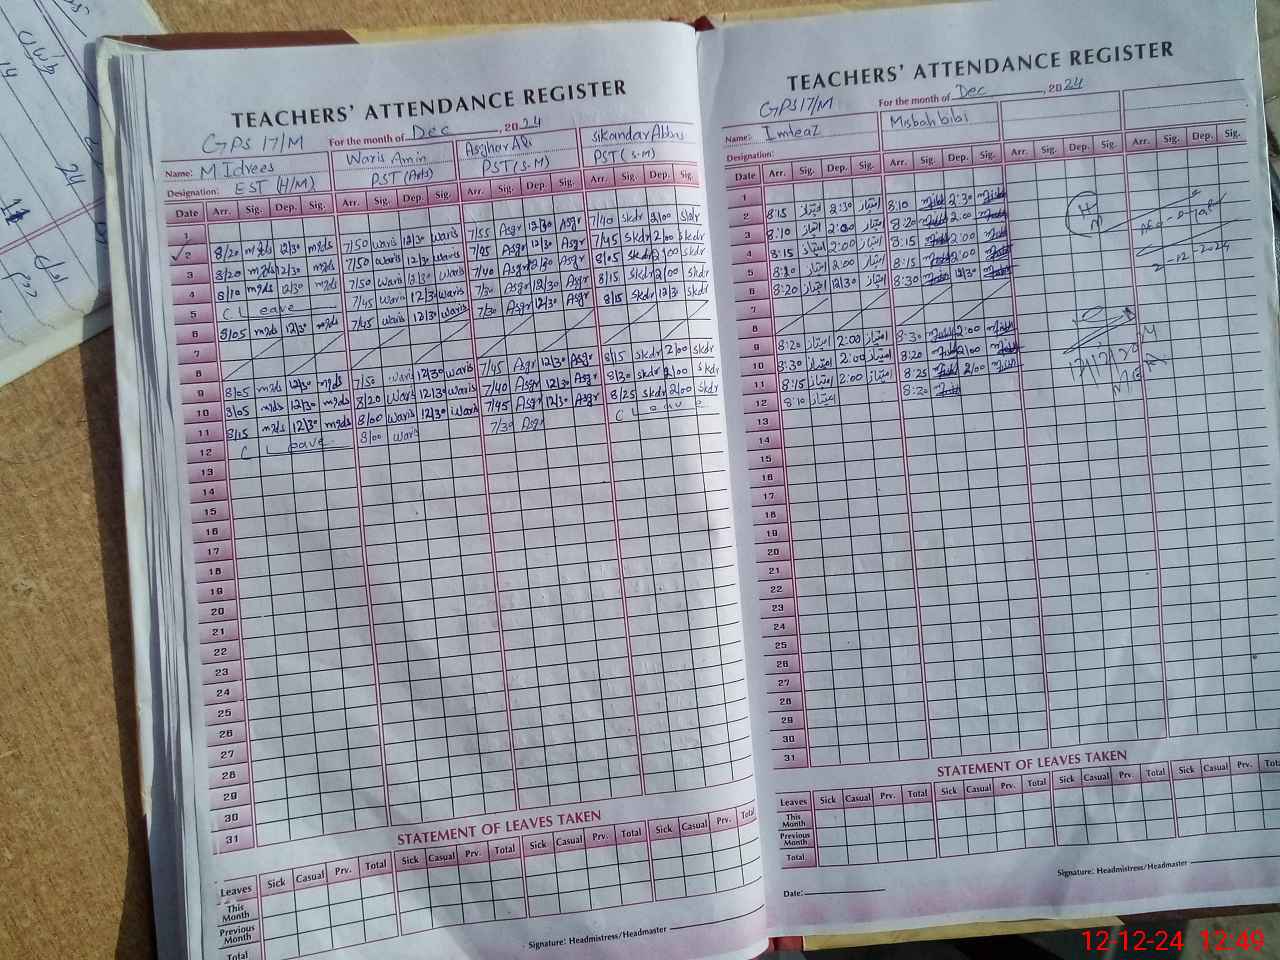 TEACHERS' ATTENDANCE REGISTER
GPS 17/M For the month of Dec, 2024
Name: M. Idrees Waris Amin Asghar Ali Sikandar Abbas
Designation: EST (H/M) PST (Arts) PST (S.M) PST (S.M)
Date Arr. Sig. Dep. Sig. Arr. Sig. Dep. Sig. Arr. Sig. Dep. Sig. Arr. Sig. Dep. Sig.
1
2 8/20 mrds 12/30 mrds 7/50 waris 12/30 waris 7/55 Asgr 12/30 Asgr 7/40 skdr 2/00 skdr
3 8/20 mrds 12/30 mrds 7/50 waris 12/30 waris 7/45 Asgr 12/30 Asgr 7/45 skdr 2/00 skdr
4 8/10 mrds 12/30 mrds 7/50 waris 12/30 waris 7/40 Asgr 12/30 Asgr 8/05 skdr 2/00 skdr
5 C L eave 7/45 waris 12/30 waris 7/30 Asgr 12/30 Asgr 8/15 skdr 2/00 skdr
6 8/05 mrds 12/30 mrds 7/45 waris 12/30 waris 7/30 Asgr 12/30 Asgr 8/15 skdr 12/30 skdr
7
8
9 8/05 mrds 12/30 mrds 7/50 waris 12/30 waris 7/45 Asgr 12/30 Asgr 8/15 skdr 2/00 skdr
10 8/05 mrds 12/30 mrds 8/20 waris 12/30 waris 7/40 Asgr 12/30 Asgr 8/20 skdr 2/00 skdr
11 8/15 mrds 12/30 mrds 8/00 waris 12/30 waris 7/45 Asgr 12/30 Asgr 8/25 skdr 2/00 skdr
12 C L eave 8/00 waris 7/30 Asgr C L eave
13
14
15
16
17
18
19
20
21
22
23
24
25
26
27
28
29
30
31
STATEMENT OF LEAVES TAKEN
Leaves Sick Casual Prv. Total Sick Casual Prv. Total Sick Casual Prv. Total Sick Casual Prv. Total
This Month
Previous Month
Total
Signature: Headmistress/Headmaster
TEACHERS' ATTENDANCE REGISTER
GPS 17/M For the month of Dec, 2024
Name: Imteaz Misbah bibi
Designation:
Date Arr. Sig. Dep. Sig. Arr. Sig. Dep. Sig. Arr. Sig. Dep. Sig. Arr. Sig. Dep. Sig.
1
2 8:15 امتیاز 2:30 امتیاز 8:10 2:30
3 8:10 امتیاز 2:00 امتیاز 8:20 2:00
4 8:15 امتیاز 2:00 امتیاز 8:15 2:00
5 8:20 امتیاز 2:00 امتیاز 8:15 2:00
6 8:20 امتیاز 12/30 امتیاز 8:30 12/30
7
8
9 8:20 امتیاز 2:00 امتیاز 8:30 2:00
10 8:30 امتیاز 2:00 امتیاز 8:20 2/00
11 8:15 امتیاز 2:00 امتیاز 8:25 2/00
12 8:10 امتیاز 8:20
13
14
15
16
17
18
19
20
21
22
23
24
25
26
27
28
29
30
31
2-12-2024
STATEMENT OF LEAVES TAKEN
Leaves Sick Casual Prv. Total Sick Casual Prv. Total Sick Casual Prv. Total Sick Casual Prv. Total
This Month
Previous Month
Total
Signature: Headmistress/Headmaster
Date:
12-12-24 12:49